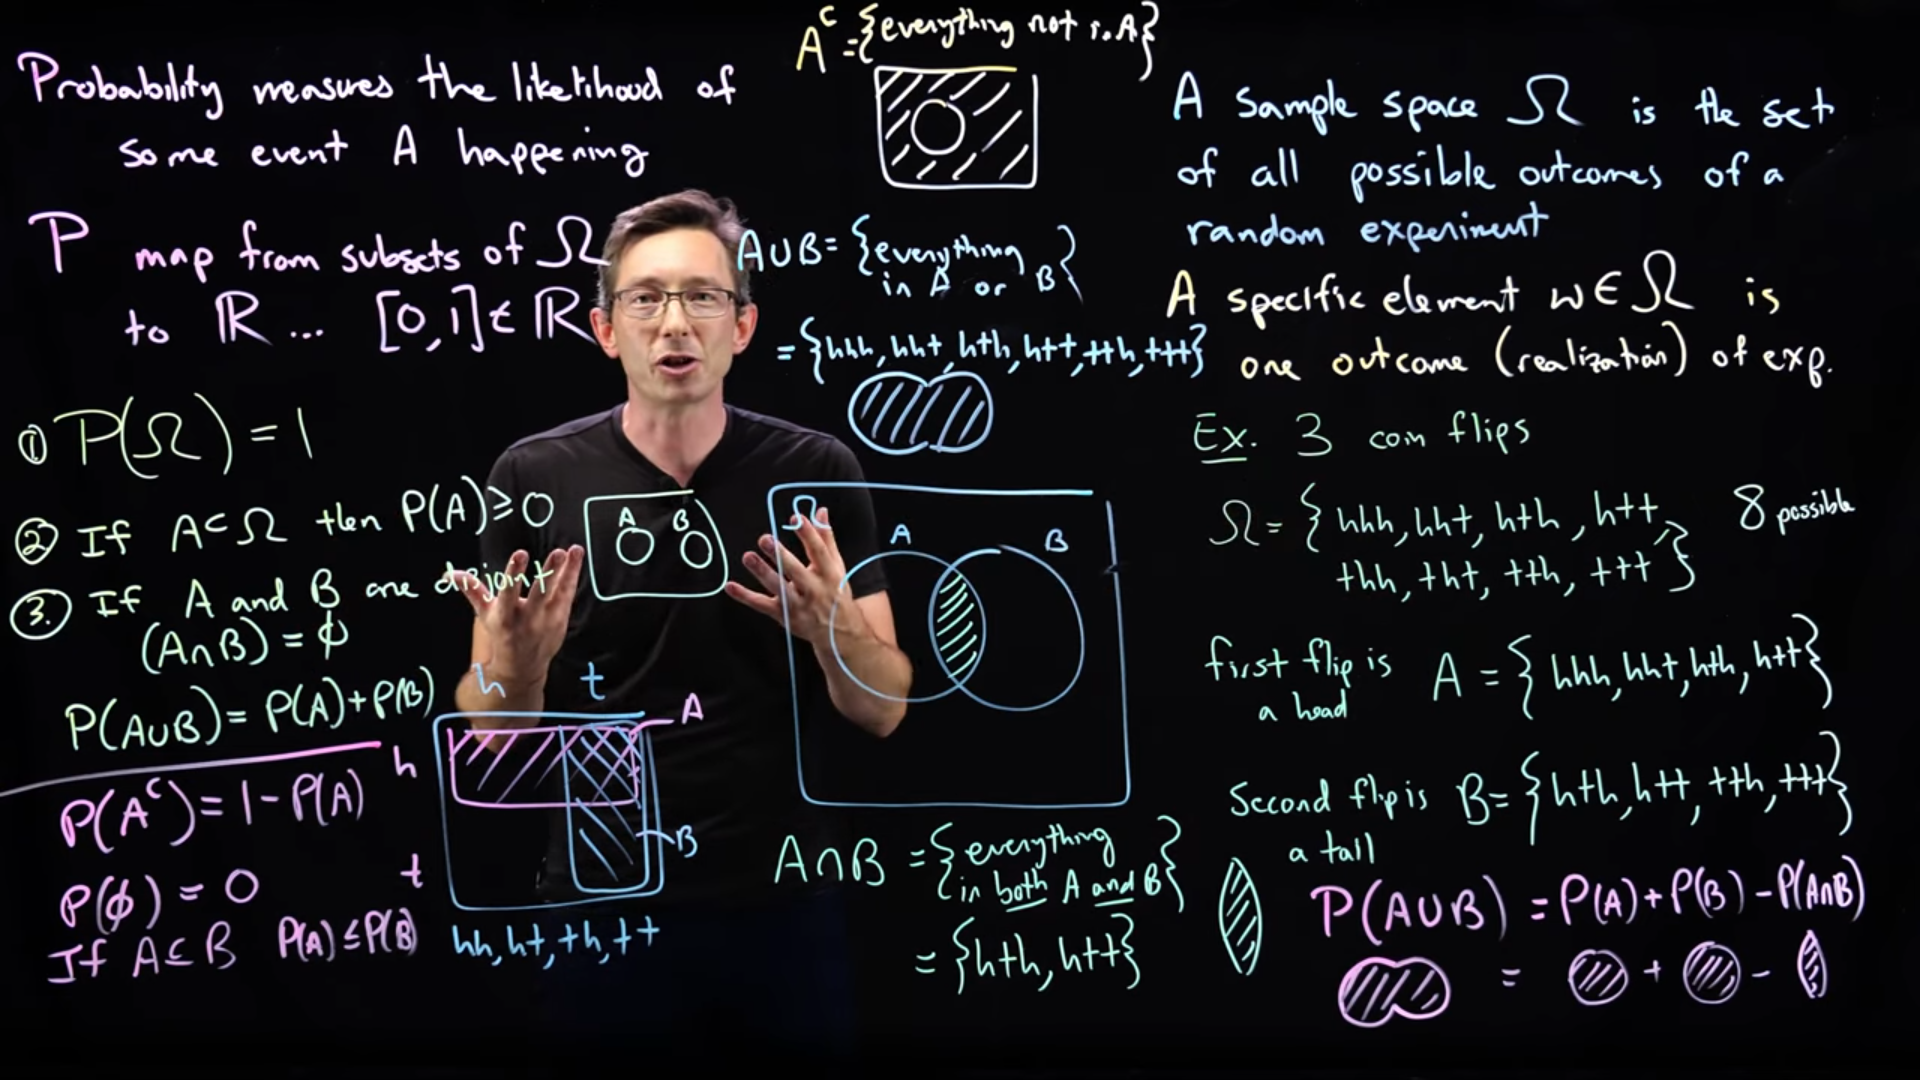 Probability measures the likelihood of
some event A happening
P map from subsets of Ω
to ℝ ... [0,1] ∈ ℝ
① P(Ω) = 1
② If A⊂Ω then P(A) ≥ 0
③. If A and B are disjoint
(A∩B) = ϕ
P(A∪B) = P(A)+P(B)
P(Aᶜ) = 1 - P(A)
P(ϕ) = 0
If A⊆B P(A) ≤ P(B)
A B
h t
A
h
B
t
hh, ht, th, tt
Aᶜ = {everything not in A}
A∪B = {everything
in A or B}
= {hhh, hht, hth, htt, tth, ttt}
Ω
A B
A∩B = {everything
in both A and B}
= {hth, htt}
A sample space Ω is the set
of all possible outcomes of a
random experiment
A specific element w ∈ Ω is
one outcome (realization) of exp.
Ex. 3 coin flips
Ω = {hhh, hht, hth, htt, 8 possible
thh, tht, tth, ttt}
first flip is A = {hhh, hht, hth, htt}
a head
Second flip is B = {hth, htt, tth, ttt}
a tail
P(A∪B) = P(A) + P(B) - P(A∩B)
= + -